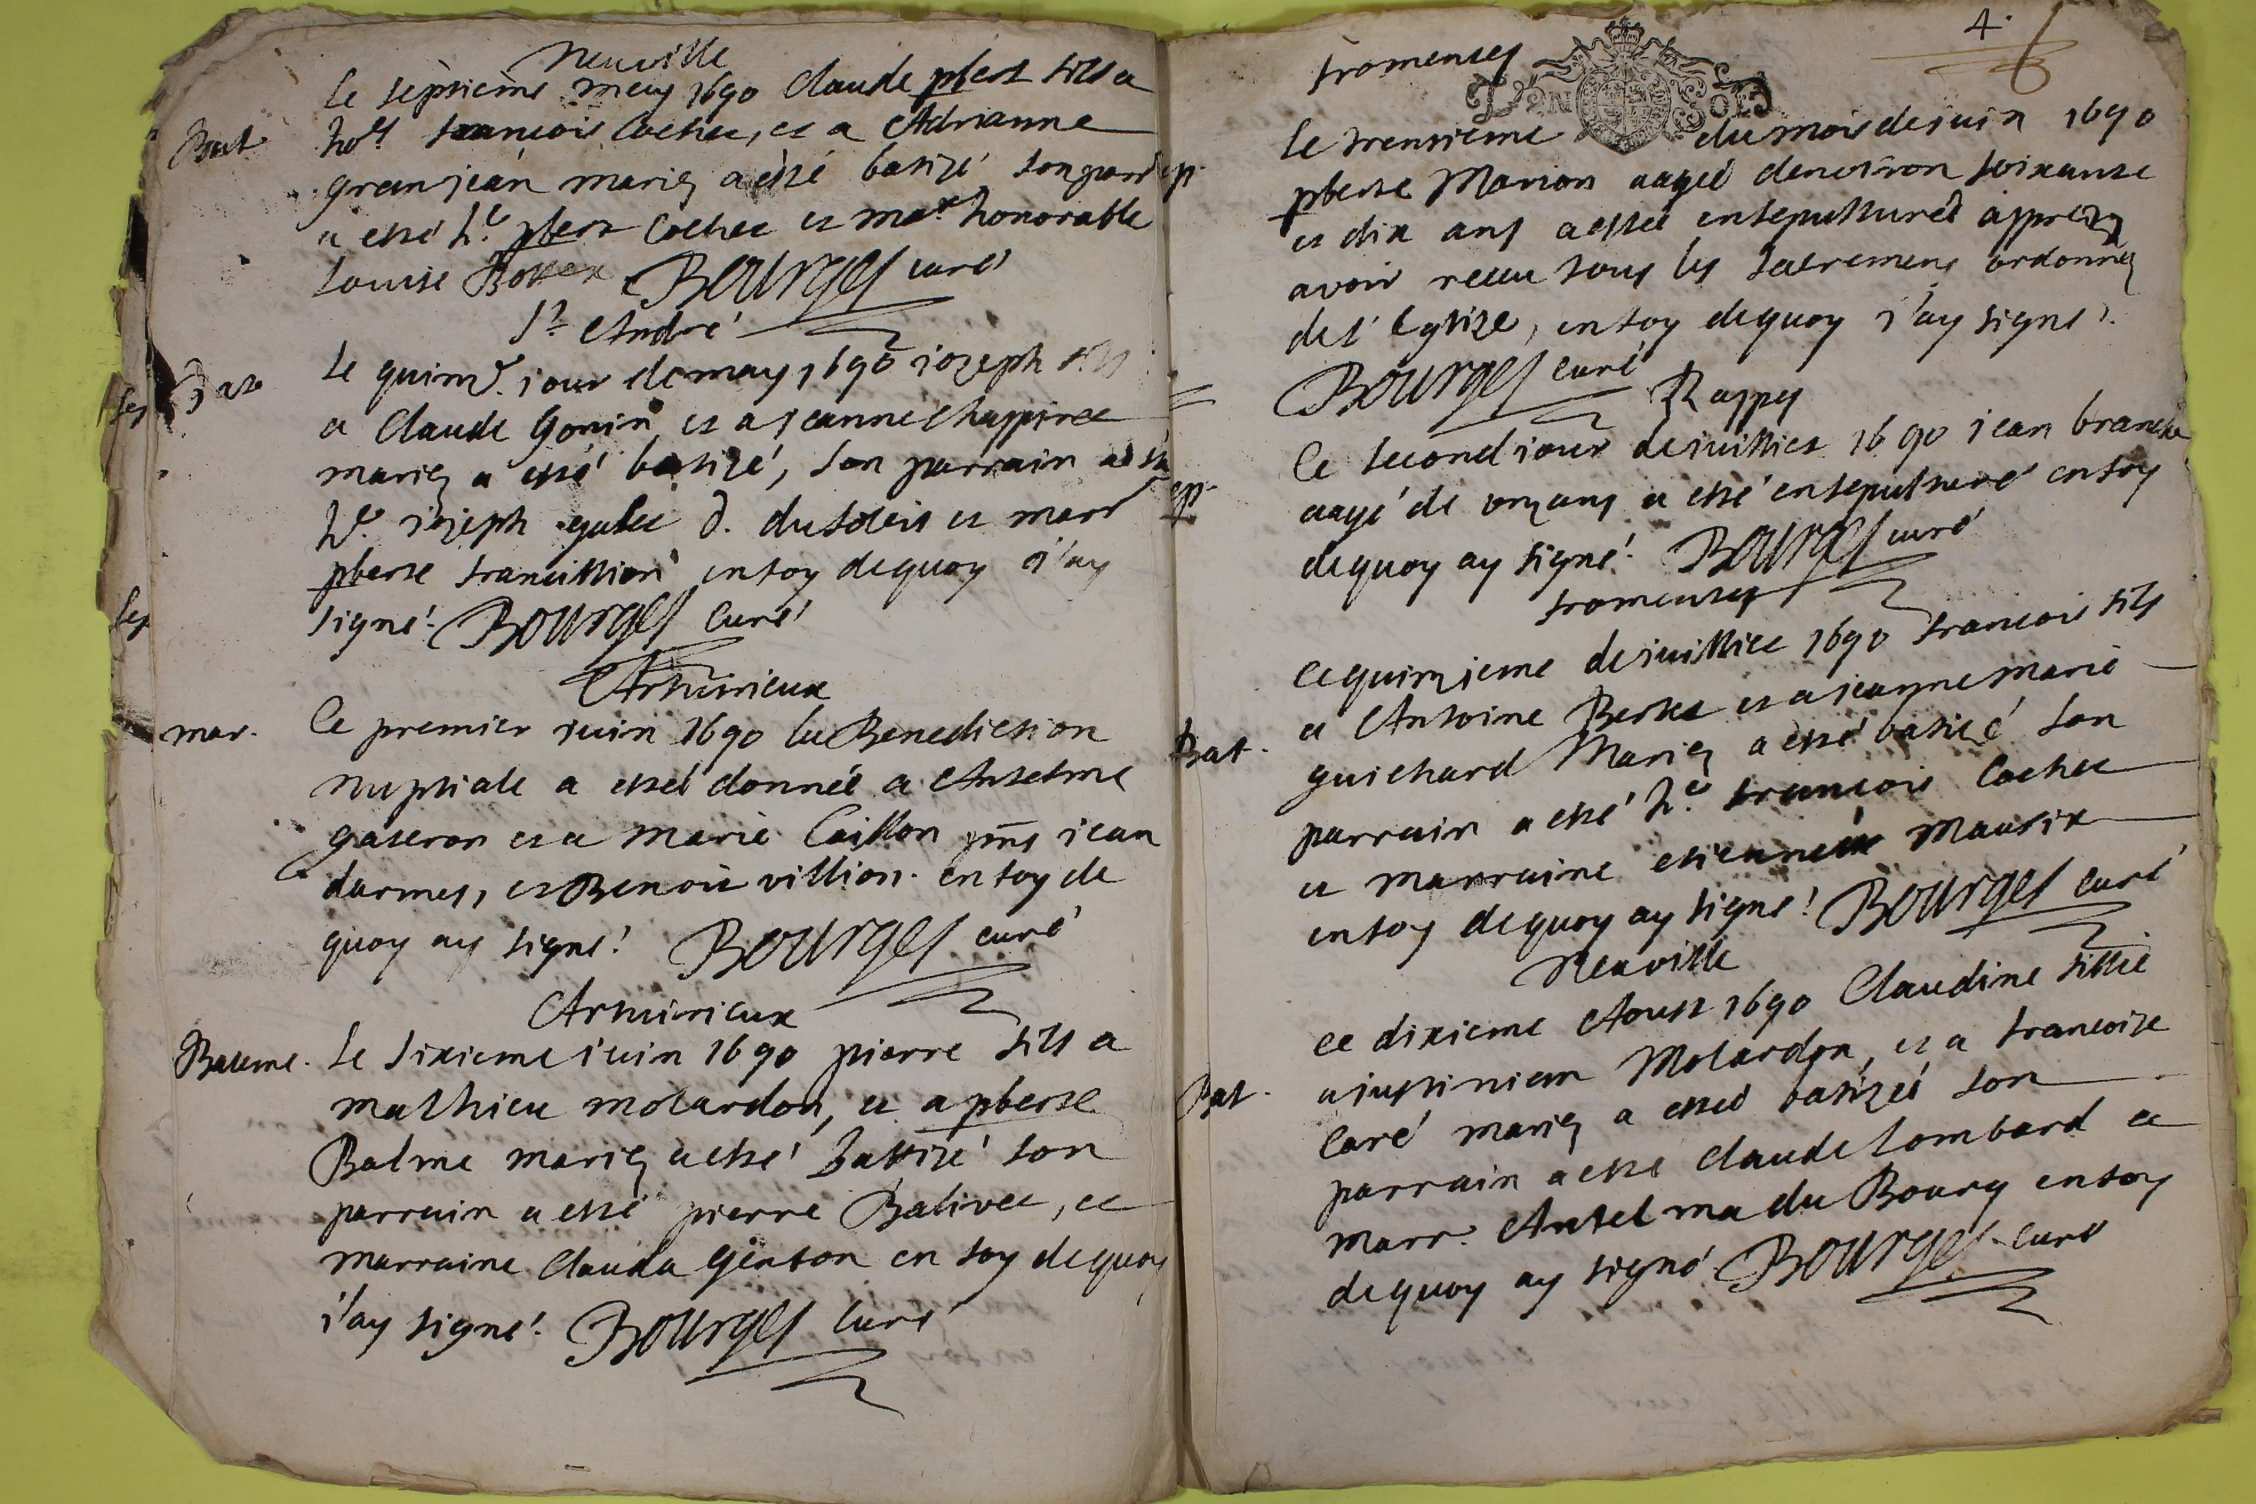 Neuville
Le septieme may 1690 Claude pbert fils a
Bat. hble francois Cochet, et a Adrianne
granjean mariez a esté batizé son parr
a esté he. pbert Cochet et mar honorable
Louise Bourges curé
St André
Le quinze. jour de may, 1690 iozeph fils
Bat a Claude Gonin et a jeanne Chappine
mariez a esté batizé, son parrain a esté
he. iozeph galet d. du soleis et marr
pberte francillion en foy de quoy i'ay
signé. Bourges Curé
Arthurieux
mar. Ce premier juin 1690 la Benediction
nuptiale a esté donnée a Anselme
gaseron et a Marie Caillon pnts jean
darmes, et Benoit villion. en foy de
quoy ay signé. Bourges curé
Arthurieux
Bateme. Le sixieme juin 1690 pierre fils a
mathieu molardon, et a pberte
Balme mariez a esté battizé son
parrain a esté pierre Balivet, et
marraine Clauda Genton en foy de quoy
i'ay signé. Bourges Curé
4.
fromentes
Le trentieme du mois de juin 1690
pberte Marion aagée denviron soixante
et dix ans a estée ensepulturée apprez
avoir receu tous les sacremens ordonnez
de l'Eglize, en foy de quoy i'ay signé.
Bourges curé
Rappes
Ce second jour de juilliet 1690 jean branche
sep. aagé de onz ans a esté ensepulturé en foy
de quoy ay signé. Bourges curé
fromentes
Ce quinzieme de juilliet 1690 francois fils
a Antoine Bertet et a jeanne marie
Bat. guichard Mariez a esté batizé son
parrain a esté he. francois Cochet
et marraine estiennéa Maurix
en foy de quoy ay signé. Bourges curé
Neuville
ce dixieme Aoust 1690 Claudine fillie
a justinien Molardon, et a francoize
Bat. Caré mariez a estée batizée son
parrain a esté Claude Lombard et
marr. Antelma du Bourg en foy
de quoy ay signé Bourges curé